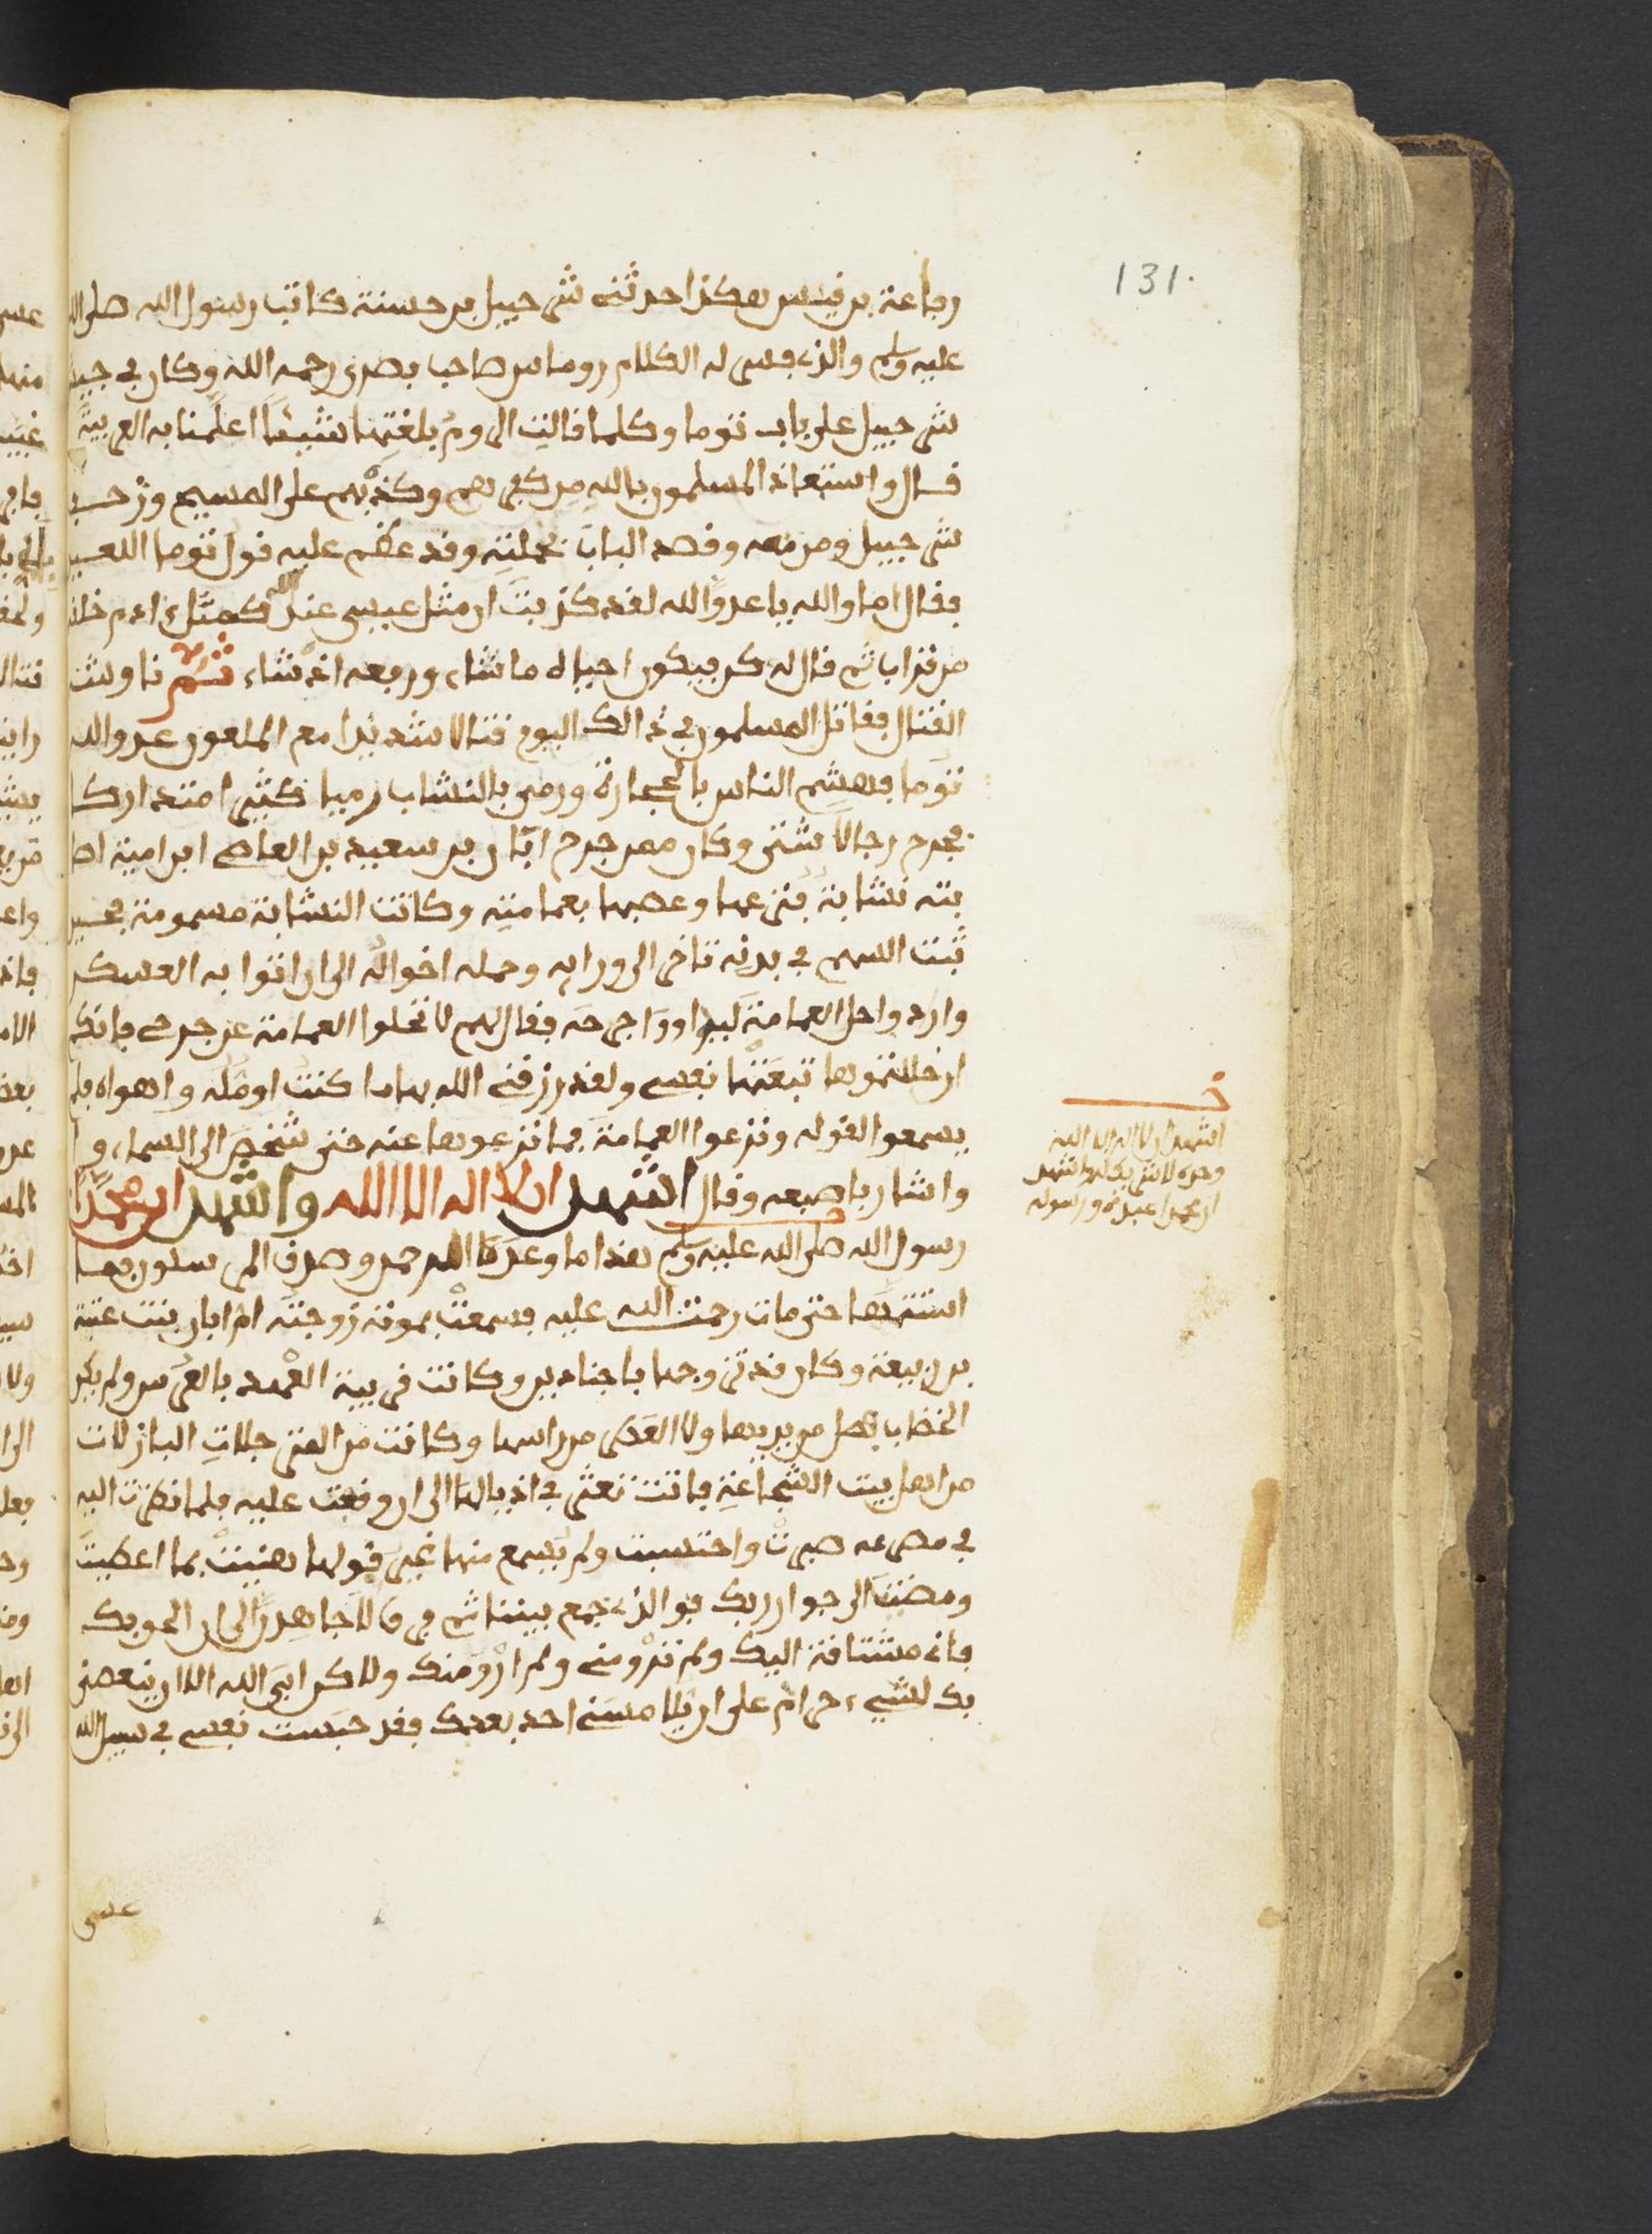 131.
رفاعة بن قيس هكذا حدثني شرحبيل بن حسنة كاتب رسول الله صلى الله
عليه وسلم والذي فسر له الكلام روماس صاحب بصرى رحمه الله وكان في جيش
شرحبيل على باب توما وكلما قالت الروم بلغتها شيئا اعلمنا به العربية
قال واستعاذ المسلمون بالله من كفرهم وكذبهم على المسيح وزحف
شرحبيل ومن معه وقصد الباب بحملته وقد عظم عليه قول توما اللعين
فقال اما والله يا عدو الله لقد كذبت ان مثل عيسى عند الله كمثل ءادم خلقه
من تراب ثم قال له كن فيكون احياه ما شاء ورفعه اذ شاء ثم ناوشت
القتال فقاتل المسلمون في ذالك اليوم قتالا شديدا مع الملعون عدو الله
توما فهشم الناس بالحجارة ورمى بالنشاب رميا كثيرا متداركا
فجرح رجالا شتى وكان ممن جرح ابان بن سعيد بن العاصي ابن امية اصا
بته نشابة فنزعها وعصبها بعمامته وكانت النشابة مسمومة فحين
ثبت السهم في بدنه تاخر الى ورايه وحمله اخوانه الى ان اتوا به العسكر
واراد واحل العمامة ليداووا جرحه فقال لهم لا تحلوا العمامة عن جرحي فانكم
ان حللتموها تبعتها نفسي ولقد رزقني الله بها ما كنت اومله واهواه فلم
يسمعوا لقوله ونزعوا العمامة فما نزعوها عنه حتى شخص الى السماء و
واشار باصبعه وقال اشهد ان لا اله الا الله واشهد ان محمدا
رسول الله صلى الله عليه وسلم هذا ما وعدنا الرحمن وصدق المرسلون فما
استتمها حتى مات رحمت الله عليه فسمعت بموته زوجته ام ابان بنت عتبة
بن ربيعة وكان قد تزوجها باجنادين وكانت قريبة العهد بالعرس ولم يكن
الخضاب نصل من يديها ولا العطر من راسها وكانت من المترجلات البازلات
من اهل بيت الشجاعة فاتت تعثر في اذيالها الى ان وقفت عليه فلما نظرت اليه
في مصرعه صبرت واحتسبت ولم يسمع منها غير قولها هنيت بما اعطيت
ومضيت الى جوار ربك فهو الذي جمع بيننا ثم فرق لاجاهدن الى ان الحق بك
فانا مشتاقة اليك ولم ترو مني ولم ارو منك ولاكن ابى الله الا ان ينغصني
بك لشيء حرام علي ان لا مسني احد بعدك فقد حبست نفسي في سبيل الله
عسى
خ
اشهد ان لا اله الا الله
وحده لا شريك له واشهد
ان محمدا عبده ورسوله